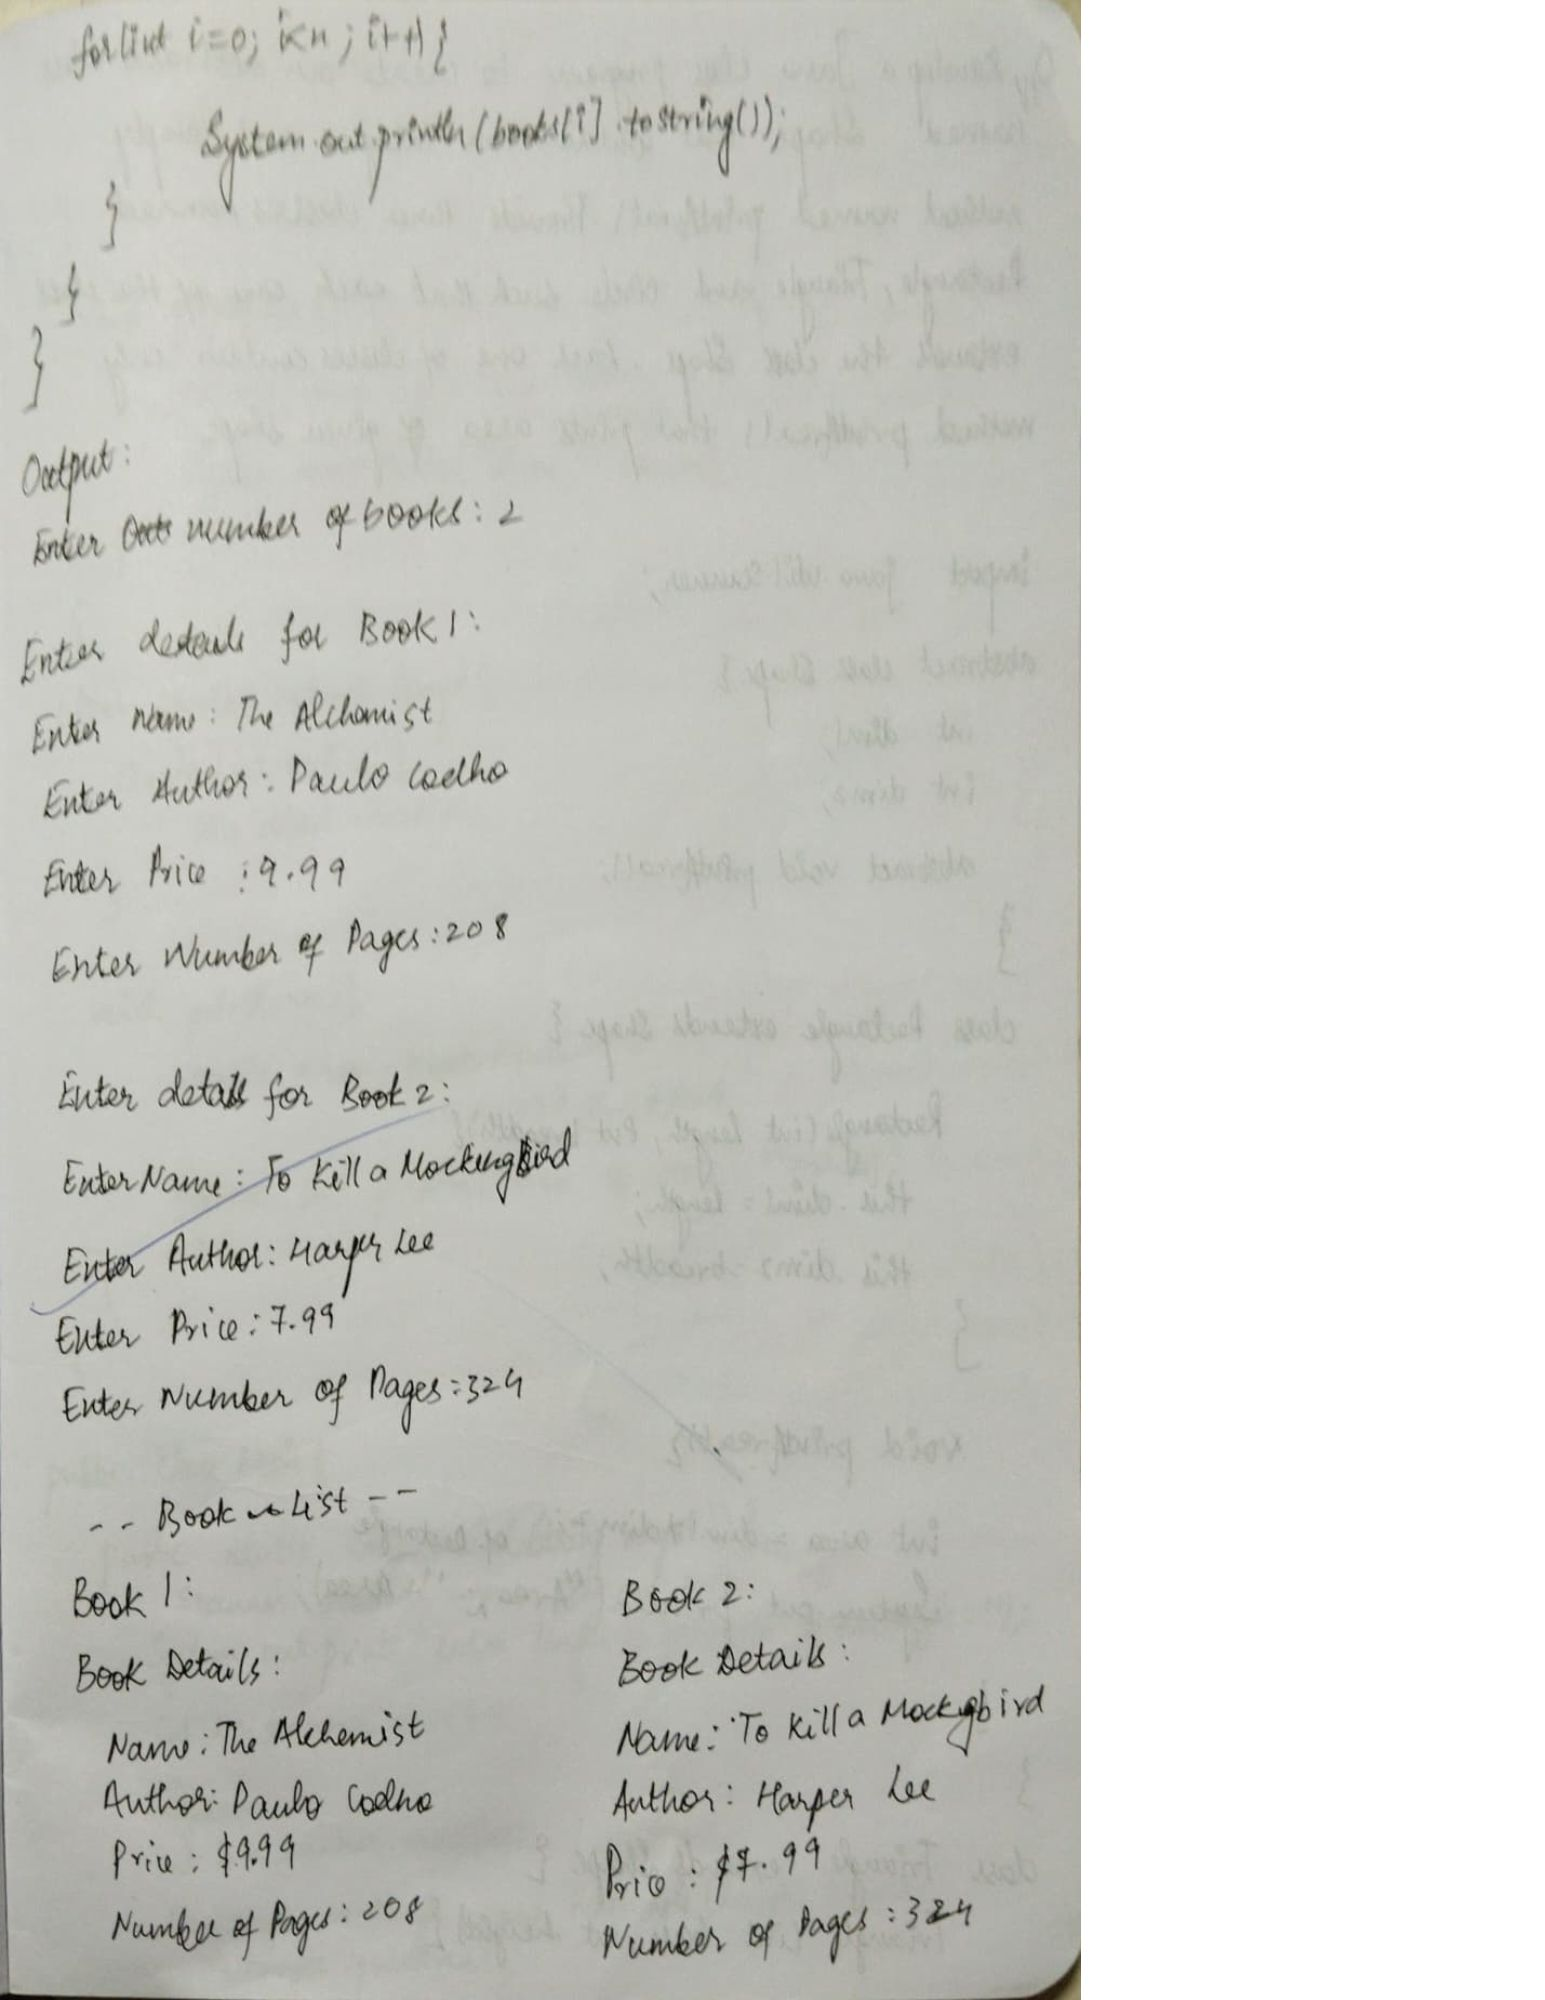 for(int i=0; i<n; i++){
System.out.println(books[i].tostring());
}
}
}
Output:
Enter number of books: 2
Enter details for Book 1:
Enter Name: The Alchemist
Enter Author: Paulo Coelho
Enter Price: 9.99
Enter Number of Pages: 208
Enter details for Book 2:
Enter Name: To Kill a Mockingbird
Enter Author: Harper Lee
Enter Price: 7.99
Enter Number of Pages: 324
-- Book List --
Book 1:
Book Details:
Name: The Alchemist
Author: Paulo Coelho
Price: $9.99
Number of Pages: 208
Book 2:
Book Details:
Name: To Kill a Mockingbird
Author: Harper Lee
Price: $7.99
Number of Pages: 324